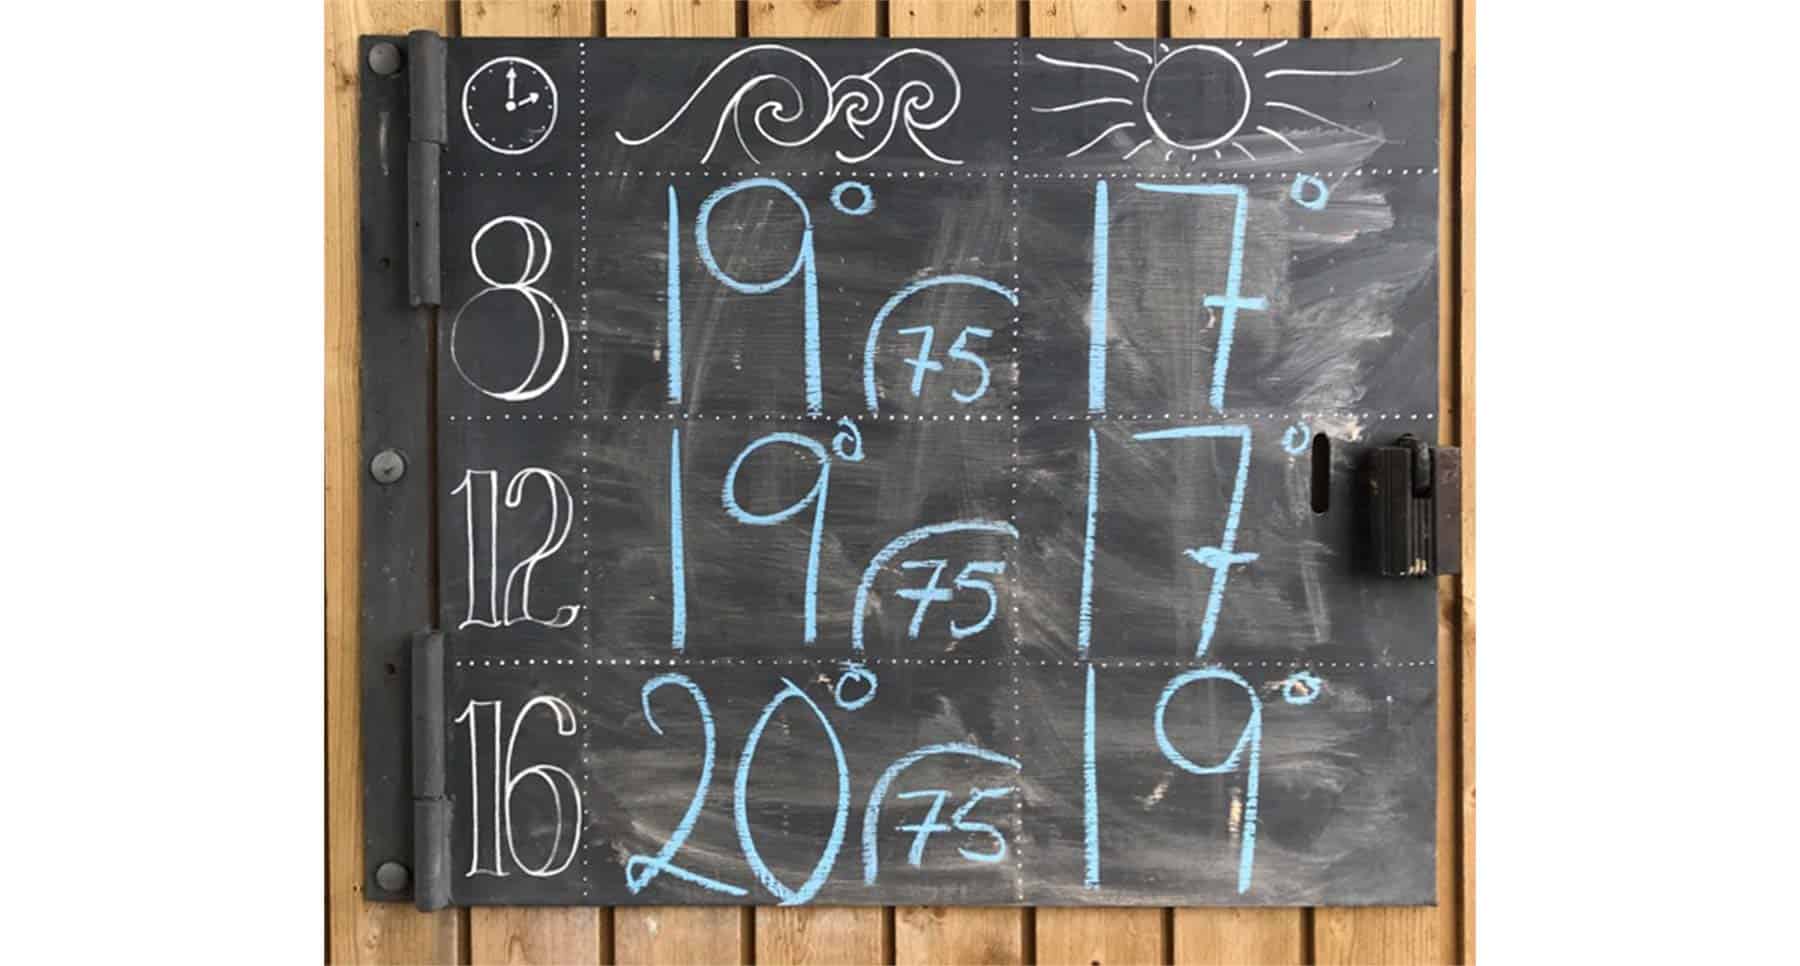 8 19° 75 17°
12 19° 75 17°
16 20° 75 19°